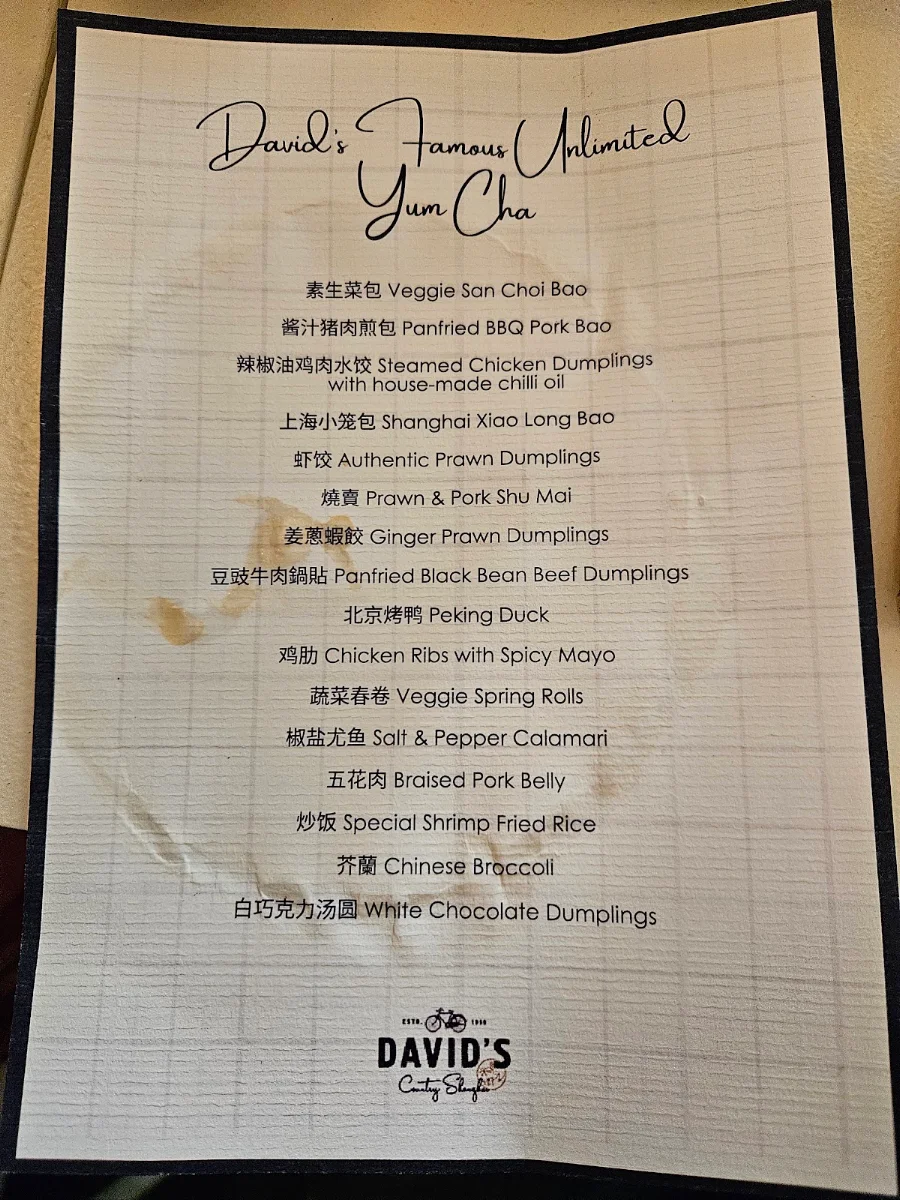 David's Famous Unlimited
Yum Cha
素生菜包 Veggie San Choi Bao
酱汁猪肉煎包 Panfried BBQ Pork Bao
辣椒油鸡肉水饺 Steamed Chicken Dumplings
with house-made chilli oil
上海小笼包 Shanghai Xiao Long Bao
虾饺 Authentic Prawn Dumplings
燒賣 Prawn & Pork Shu Mai
姜蔥蝦餃 Ginger Prawn Dumplings
豆豉牛肉鍋貼 Panfried Black Bean Beef Dumplings
北京烤鸭 Peking Duck
鸡肋 Chicken Ribs with Spicy Mayo
蔬菜春卷 Veggie Spring Rolls
椒盐尤鱼 Salt & Pepper Calamari
五花肉 Braised Pork Belly
炒饭 Special Shrimp Fried Rice
芥蘭 Chinese Broccoli
白巧克力汤圆 White Chocolate Dumplings
ESTD. 1998
DAVID'S
Country Shanghai